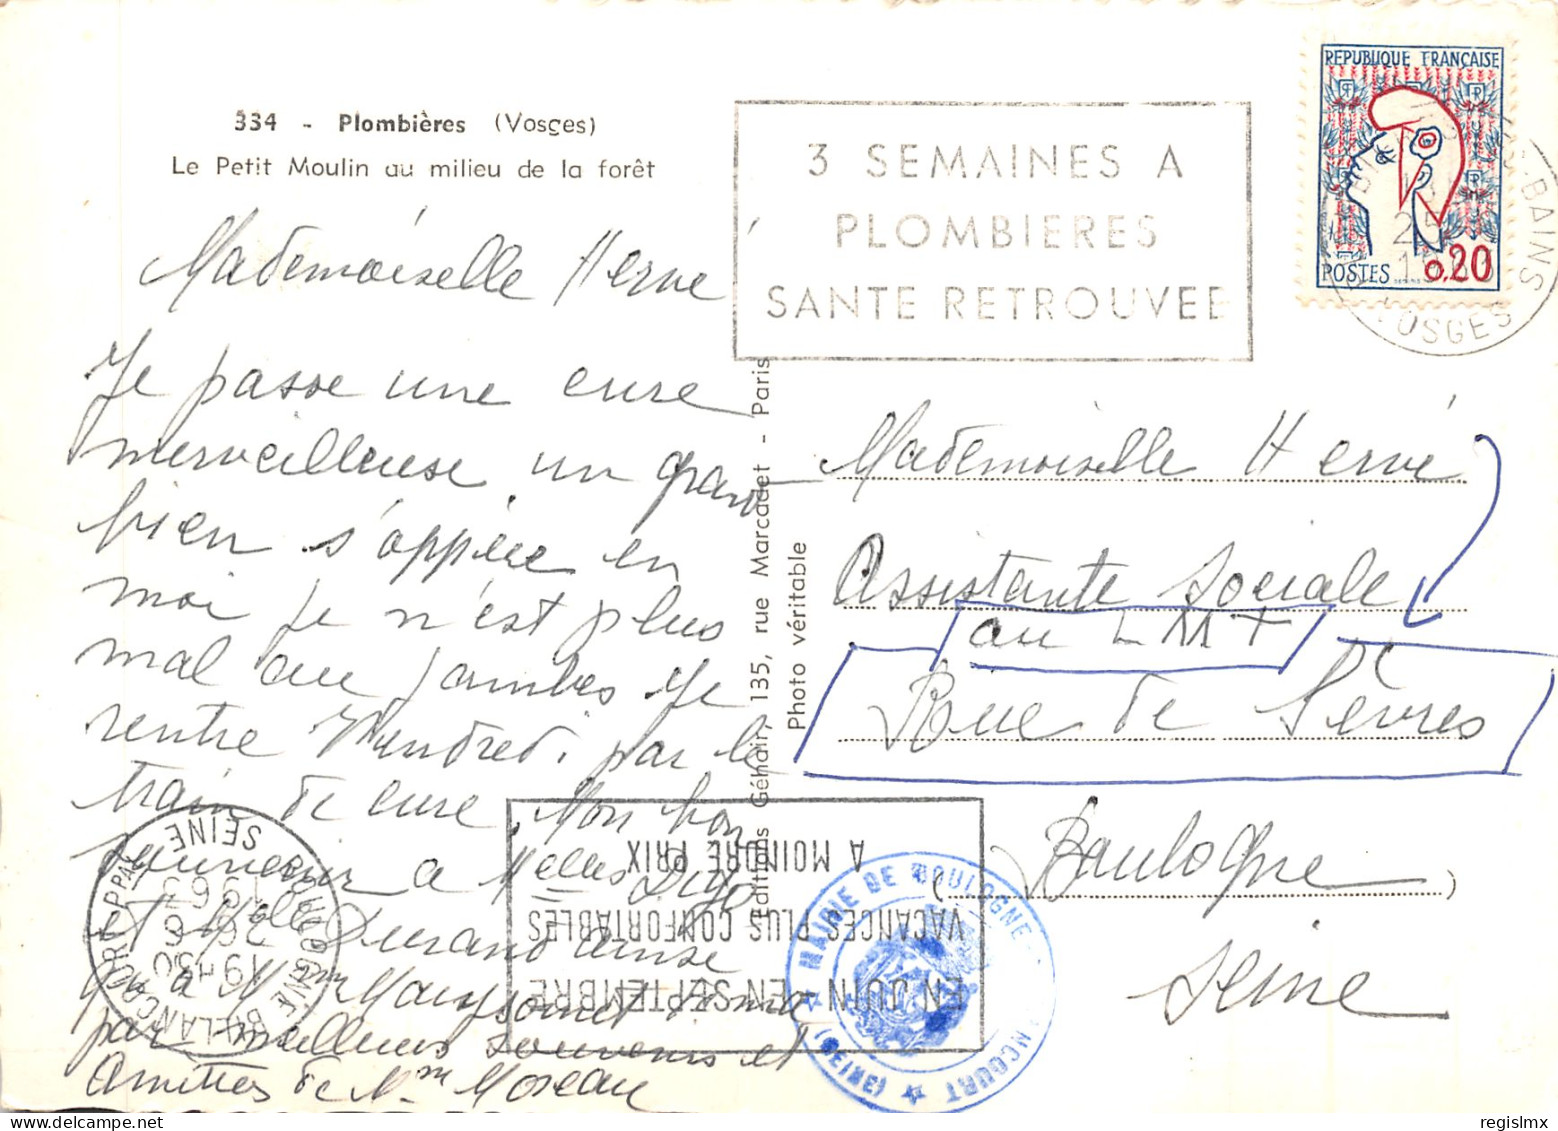 334 - Plombières (Vosges)
Le Petit Moulin au milieu de la forêt
3 SEMAINES A
PLOMBIERES
SANTE RETROUVEE
REPUBLIQUE FRANÇAISE
POSTES 0,20
BAINS
VOSGES
Mademoiselle Hervé
Je passe une cure
merveilleuse un grand
bien s'oppère en
moi je n'est plus
mal au jambes je
rentre Vendredi par le
train de cure, Mon bon
souvenir a Melles
et Melle Durand ainse
a Mme
par meilleurs souvenirs et
Amitiés de Mme Moreau
Editions Géhair, 135, rue Marcadet - Paris
Photo véritable
Mademoiselle Hervé
Assistante Sociale
au
Rue de Sèvres
Boulogne
Seine
BOULOGNE BILLANCOURT PPAL
SEINE
19H30
26-6
1963
EN JUIN - EN SEPTEMBRE
VACANCES PLUS CONFORTABLES
A MOINDRE PRIX
MAIRIE DE BOULOGNE
NCOURT
(SEINE)
regislmx